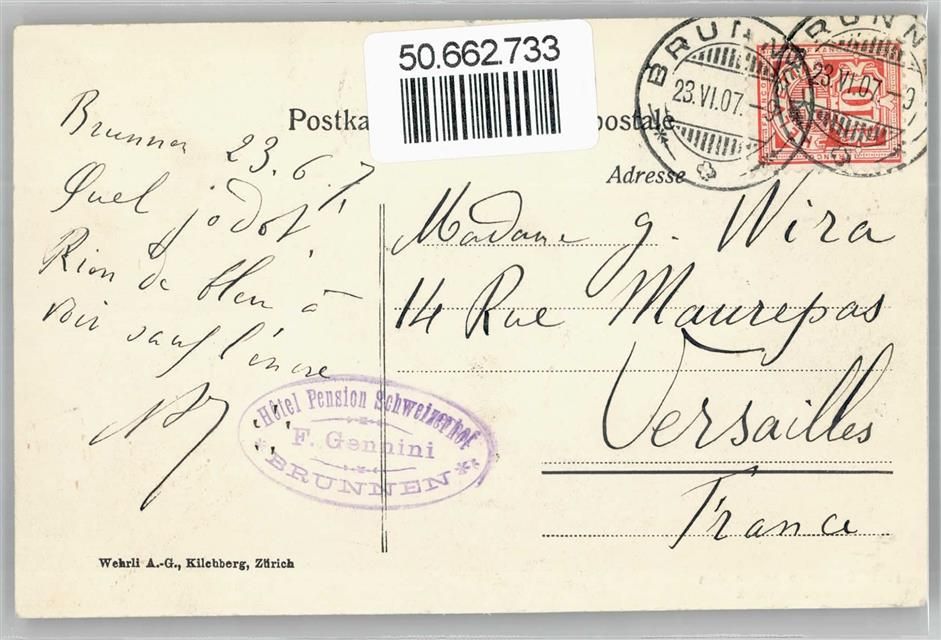 50.662.733
Postka
postale
Adresse
BRUNNEN
23.VI.07.-9
BRUNNEN
23.VI.07.-9
10
Brunnen 23.6.7
Quel
Rien de bleu à
voir sauf l'encre
Madame G. Wira
14 Rue Maurepas
Versailles
France
Hôtel Pension Schweizerhof
F. Gennini
BRUNNEN
Wehrli A.-G., Kilchberg, Zürich